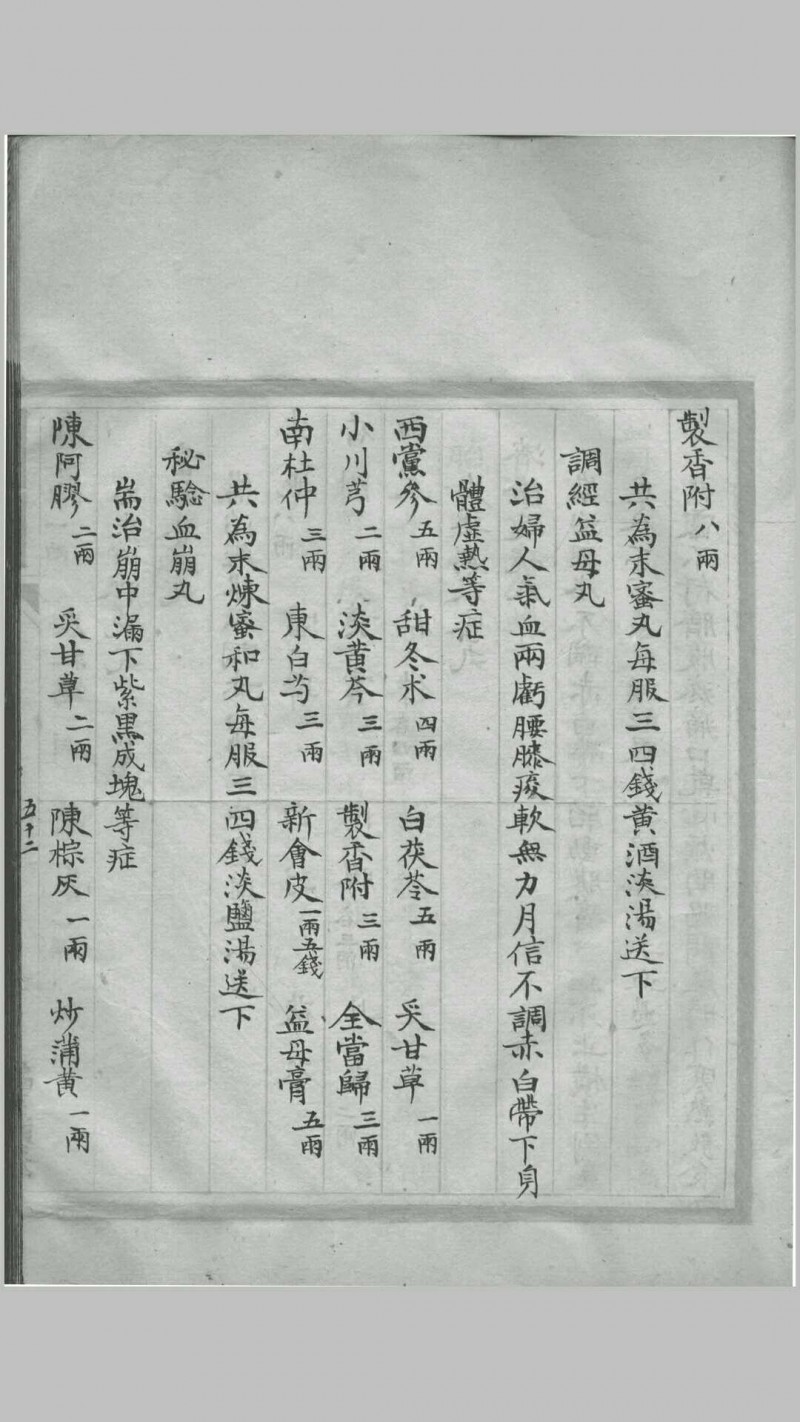 製香附 八兩
共為末蜜丸每服三四錢黃酒淡湯送下
調經益母丸
治婦人氣血兩虧腰膝痠軟無力月信不調赤白帶下身
體虛熱等症
西黨參 五兩 甜冬朮 四兩 白茯苓 五兩 炙甘草 一兩
小川芎 二兩 淡黃芩 三兩 製香附 三兩 全當歸 三兩
南杜仲 三兩 東白芍 三兩 新會皮 一兩五錢 益母膏 五兩
共為末煉蜜和丸每服三四錢淡鹽湯送下
秘驗血崩丸
耑治崩中漏下紫黑成塊等症
陳阿膠 二兩 炙甘草 二兩 陳棕灰 一兩 炒蒲黃 一兩
五十二